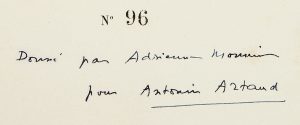 N° 96
Donné par Adrienne Monnier
pour Antonin Artaud